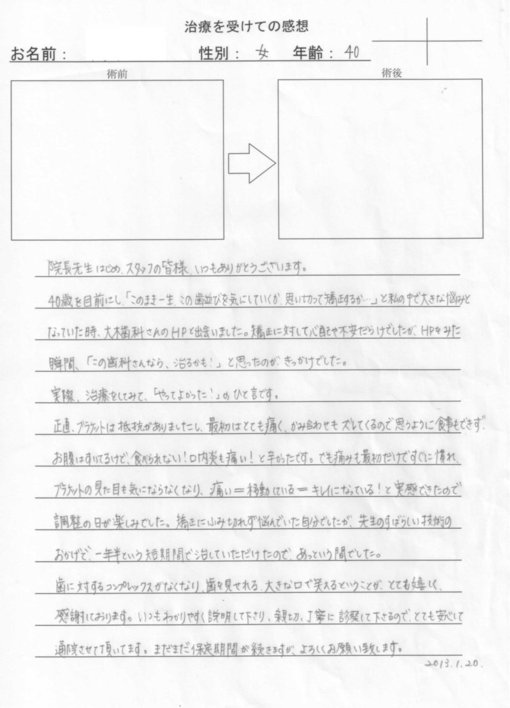 治療を受けての感想
お名前： 性別： 女 年齢： 40
術前 術後
院長先生はじめ、スタッフの皆様、いつもありがとうございます。
40歳を目前にし、「このまま一生、この歯並びを気にしていくか、思い切って矯正するか…」と私の中で大きな悩みと
なっていた時、大木歯科さんのHPと出会いました。矯正に対して心配や不安だらけでしたが、HPをみた
瞬間、「この歯科さんなら、治るかも！」と思ったのが、きっかけでした。
実際、治療をしてみて、「やってよかった！」のひと言です。
正直、ブラケットは抵抗がありましたし、最初はとても痛く、かみ合わせもズレてくるので思うように食事もできず、
お腹はすいてるけど、食べられない！口内炎も痛い！と辛かったです。でも痛みも最初だけですぐに慣れ、
ブラケットの見た目も気にならなくなり、痛い＝移動している＝キレイになっている！と実感できたので
調整の日が楽しみでした。矯正にふみ切れず悩んでいた自分でしたが、先生のすばらしい技術の
おかげで、一年半という短期間で治していただけたので、あっという間でした。
歯に対するコンプレックスがなくなり、歯を見せれる、大きな口で笑えるということが、とても嬉しく、
感謝しております。いつもわかりやすく説明して下さり、親切、丁寧に診察して下さるので、とても安心して
通院させて頂いてます。まだまだ保定期間が続きますが、よろしくお願い致します。
2013.1.20.